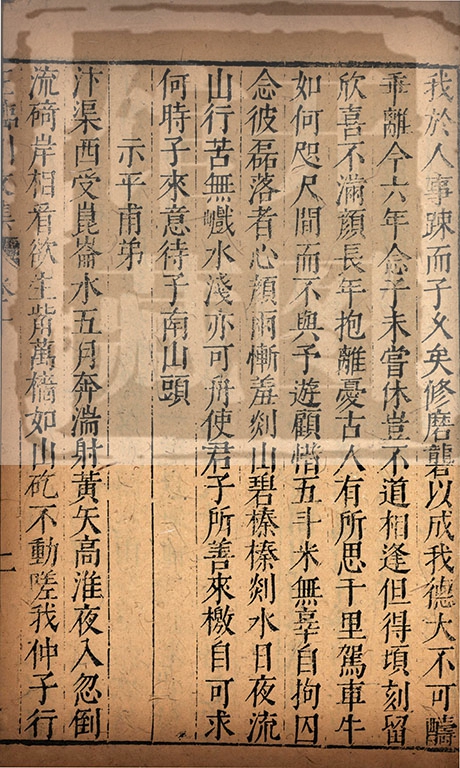 我於人事踈而子乂矣修磨礱以成我德大不可醻
乖離今六年念子未嘗休豈不道相逢但得頃刻留
欣喜不滿顏長年抱離憂古人有所思千里駕車牛
如何咫尺間而不與予遊顧惜五斗米無辜自拘囚
念彼磊落者心顏兩慚羞剡山碧榛榛剡水日夜流
山行苦無巇水淺亦可舟使君子所善來檄自可求
何時子來意待子南山頭
示平甫弟
汴渠西受崑崙水五月奔湍射黃矢高淮夜入忽倒
流碕岸相看欲生觜萬檣如山矻不動嗟我仲子行